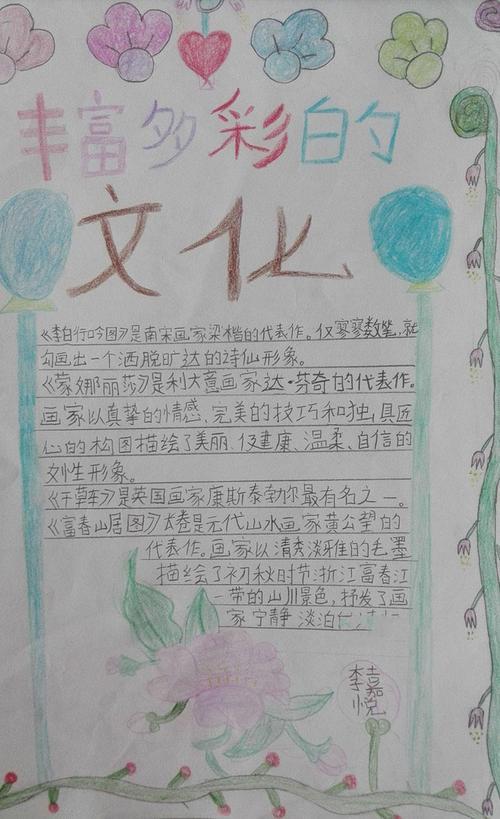 丰富多彩的
文化
《李白行吟图》是南宋画家梁楷的代表作。仅寥寥数笔,就
勾画出一个洒脱旷达的诗仙形象。
《蒙娜丽莎》是利大意画家达·芬奇的代表作。
画家以真挚的情感、完美的技巧和独具匠
心的构图描绘了美丽、健康、温柔、自信的
女性形象。
《干草车》是英国画家康斯泰勃尔最有名之一。
《富春山居图》长卷是元代山水画家黄公望的
代表作。画家以清秀淡雅的毛墨
描绘了初秋时节浙江富春江
一带的山川景色,抒发了画
家宁静淡泊
李嘉悦